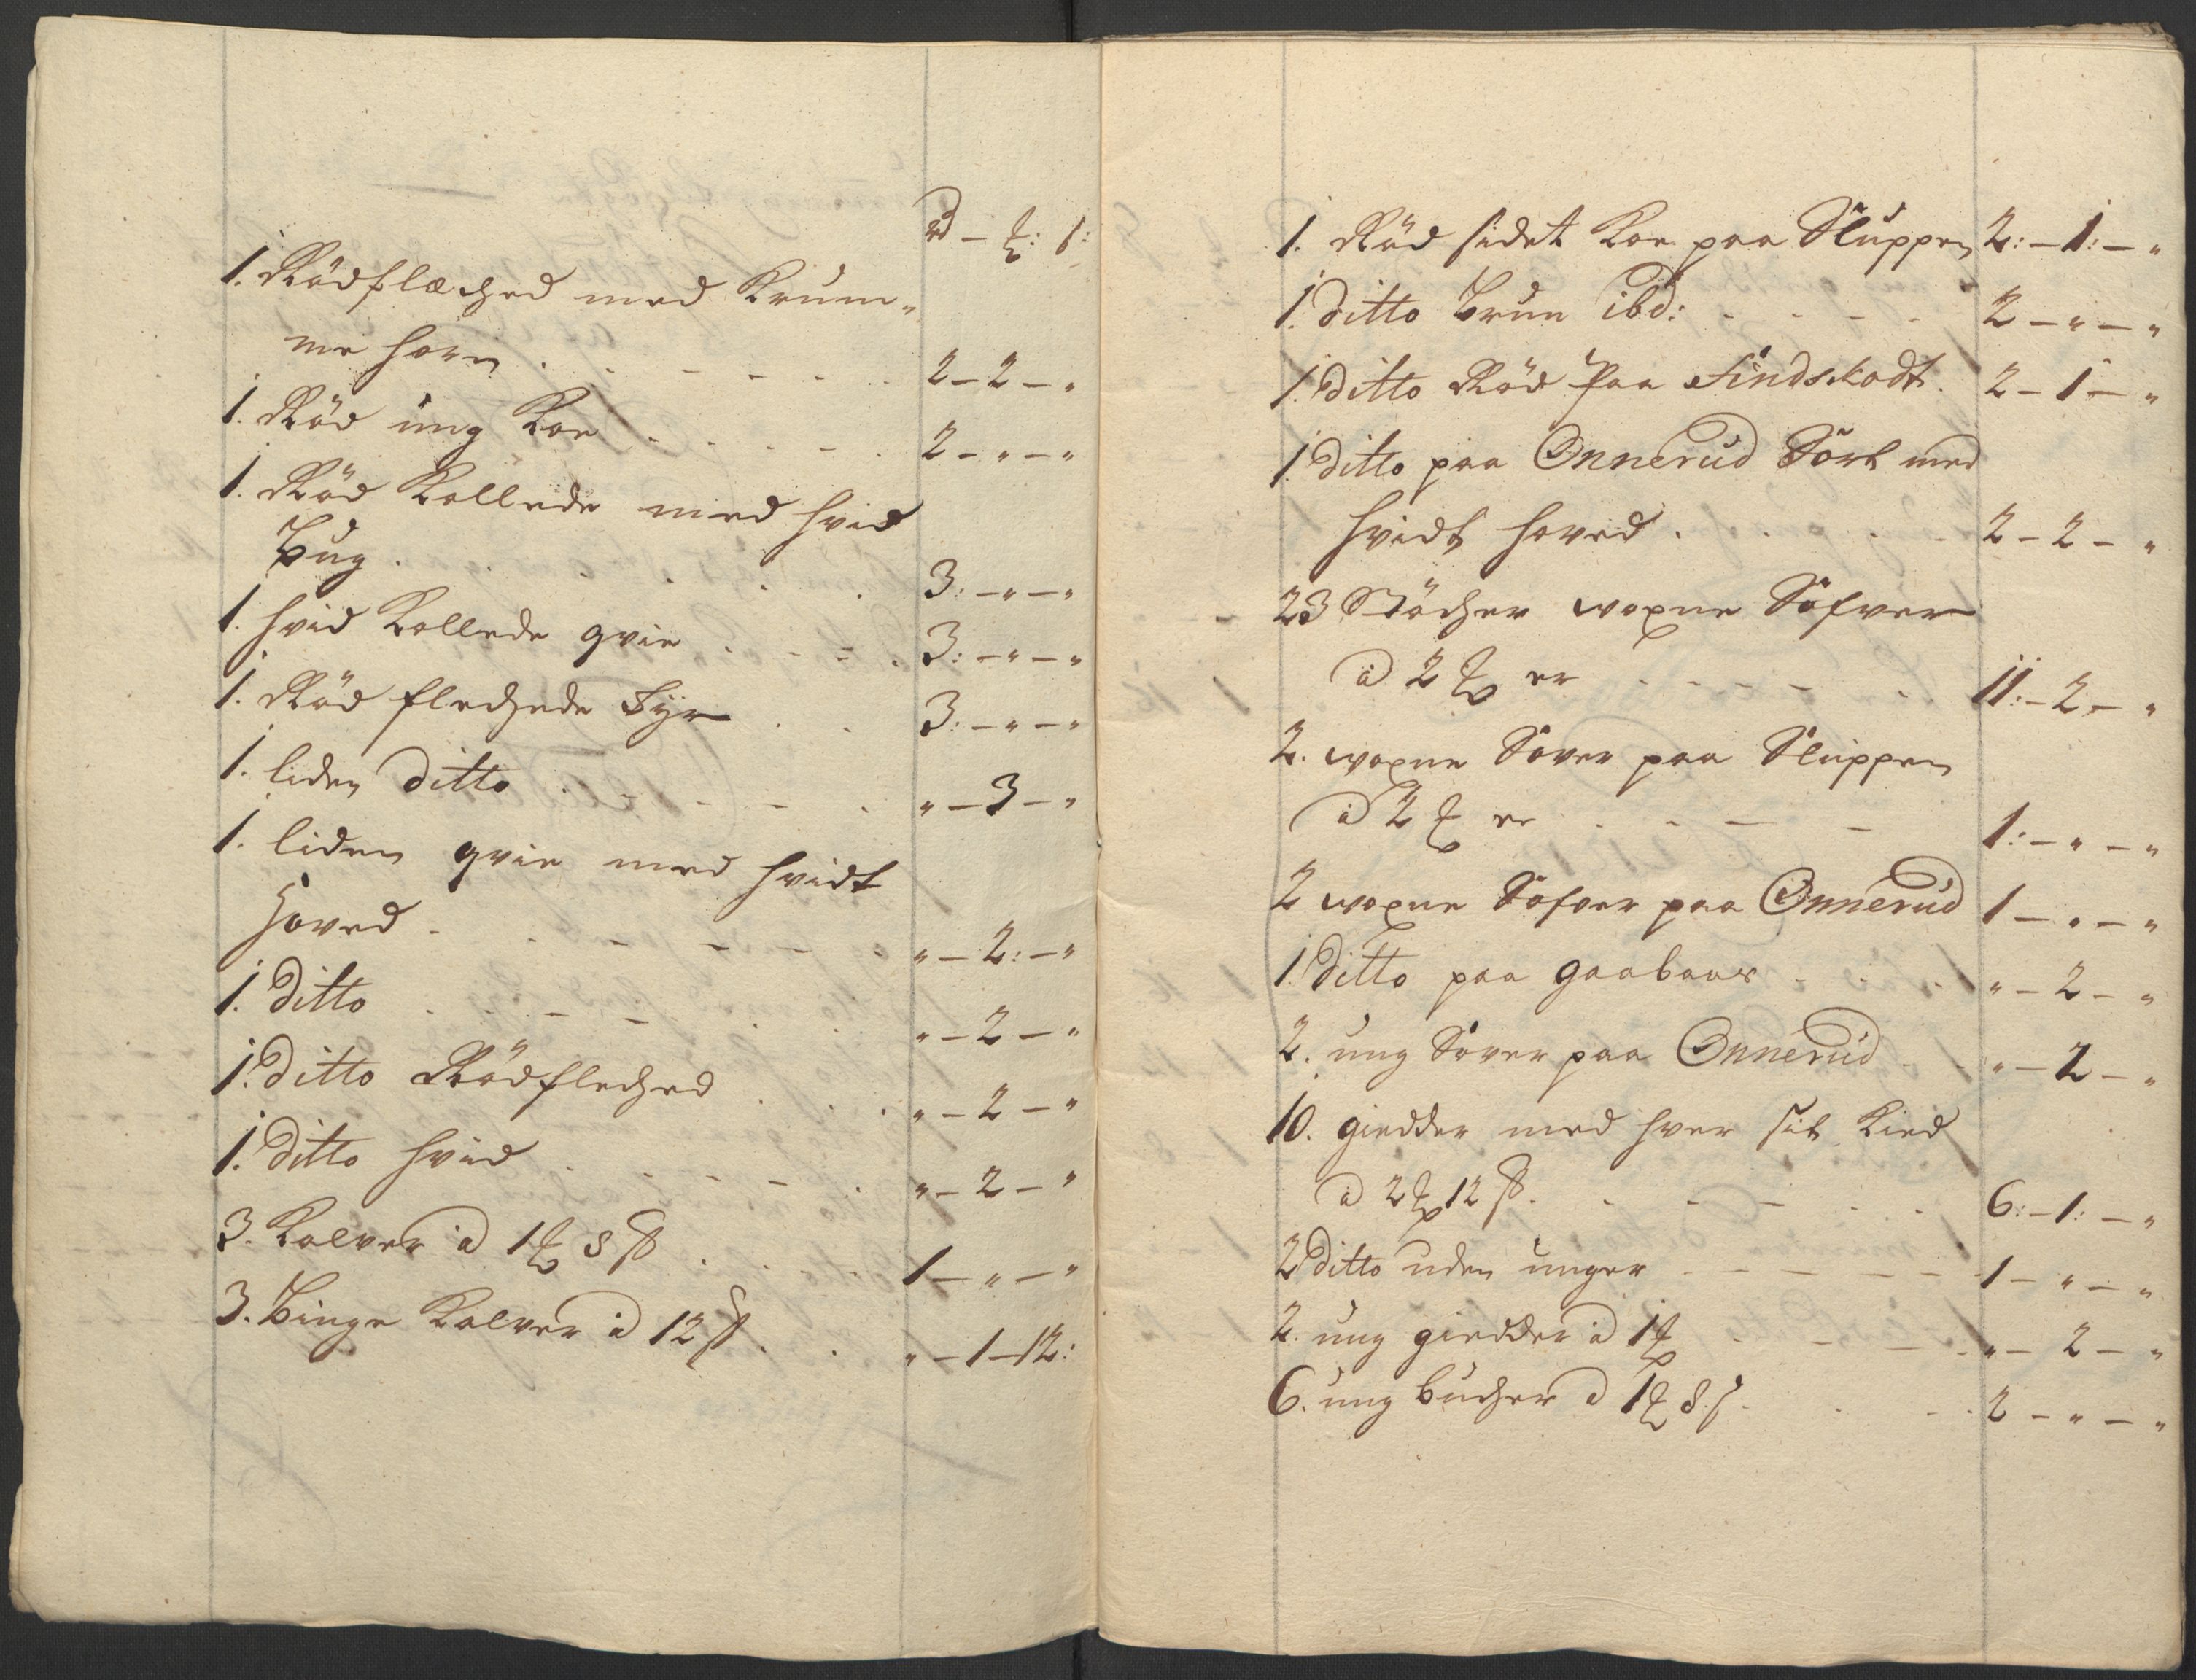 rd – ꝑ: ß:
1. Rödflæched med Krum„
me horn . . . . . . . 2 – 2 – „
1. Röd ung Koe . . . . . 2 – „ – „
1. Röd Kollede med hvid
Bug . . . . . 3: – „ – „
1. hvid Kollede qvie . . . . 3: – „ – „
1. Röd flechede Tyr . . 3: – „ – „
1. liden ditto . . . . . „ – 3 – „
1. liden qvie med hvidt
Hoved . . . . . . „ – 2: – „
1. Ditto . . . . . . „ – 2 – „
1. Ditto Rödfleched . . . „ – 2 – „
1. Ditto hvid . . . . . „ – 2 – „
3. Kalver á 1 8 ß . . . . 1 – „ – „
3. Binge Kalver á 12 ß . . „ – 1 – 12:
1. Röd sidet Koe paa Sluppen 2: – 1: – „
1. Ditto Brun ibd: . . . . 2 – „ – „
1. Ditto Röd Paa Findskodt. 2 – 1 – „
1. Ditto paa Onnerud Sort med
hvidt hoved . . . . 2 – 2 – „
23 Stöcher woxne Söfver
á 2 er . . . . . 11: – 2 – „
2. woxne Sover paa Sluppen
á 2 er . . . . 1: – „ – „
2 woxne Söfver paa Onnerud 1 – „ – „
1. Ditto paa Gaabaar . . . „ – 2 – „
2. ung Sover paa Onnerud . . „ – 2 – „
10. giedder med hver sit Kied
á 2 12 ß . . . . . 6: – 1: – „
2 Ditto uden unger . . . . . 1 – „ – „
2. ung giedder á 1 . . . . „ – 2 – „
6. ung bucher á 1 8 ß . . . . 2 – „ – „